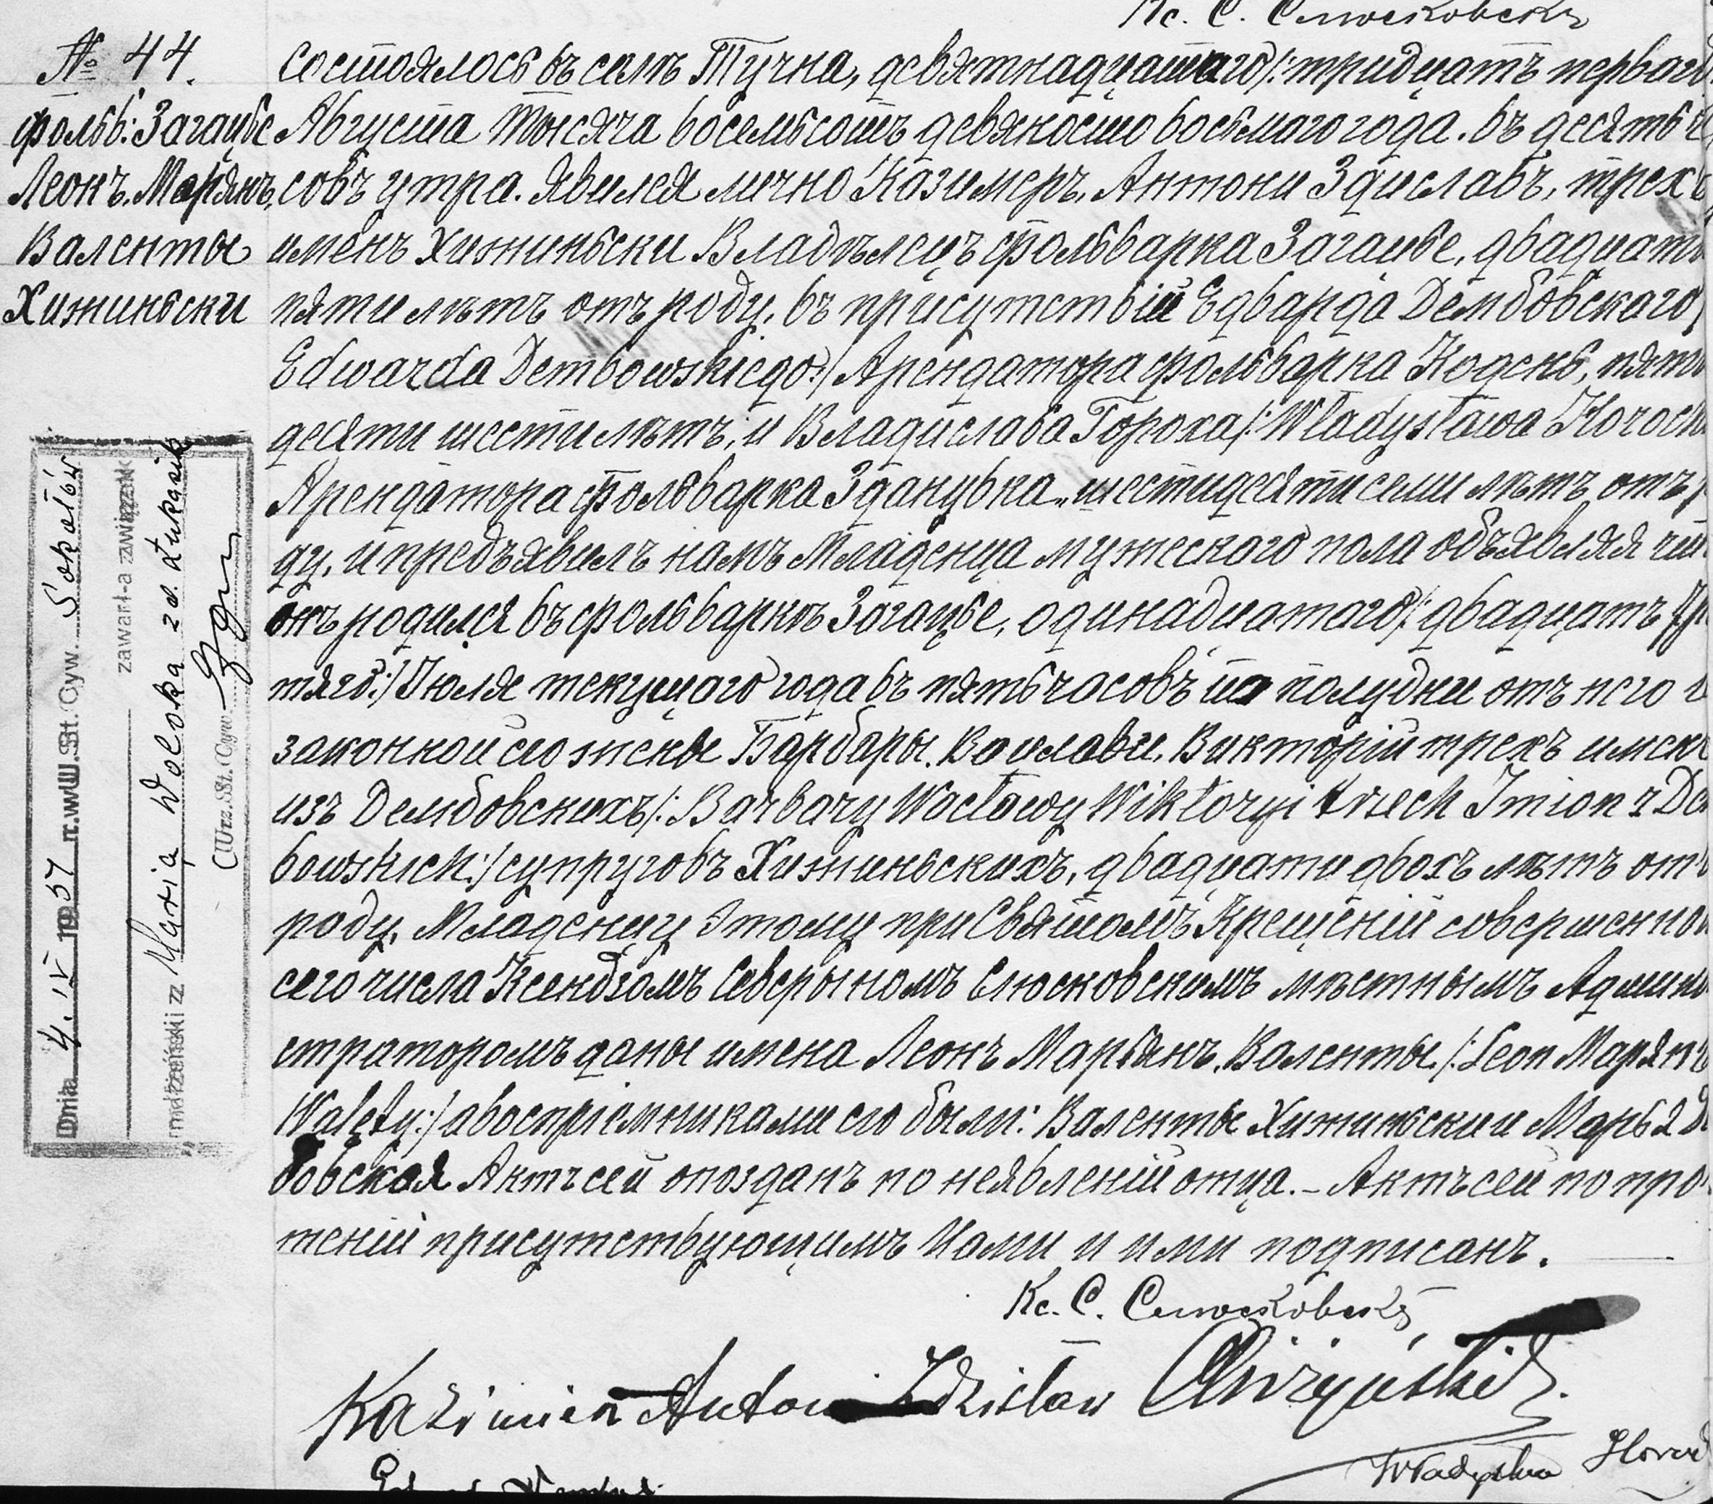 Кс. С. Слюсковскъ
№ 44.
фольв: Загацье
Леонъ. Марiянъ,
Валенты
Хижиньски
Состоялось въ селѣ Тучна, девятнадцатаго /: тридцать перваго
Августа тысяча восемьсотъ девяносто восьмаго года. въ десять ча
совъ утра. Явился лично Казимеръ, Антони Здиславъ, трехъ
именъ Хижиньски Владѣлецъ фольварка Загацье, двадцати
пяти лѣтъ отъ роду, въ присутствiи Едварда Дембовскаго/
Edwarda Dembowskiego:/ Арендатора фольварка Кодень, пять
десяти шести лѣтъ, и Владислава Гороха /: Władysława Horoch
Арендатора фольварка Зданувка, шестидесяти семи лѣтъ отъ
ду, и предъявилъ намъ Младенца мужескаго пола объявляя что
онъ родился въ фольваркѣ Загацье, одинадцатаго /: двадцать тре
тяго:/ Iюля текущаго года въ пять часовъ по полудни отъ него и
законной его жены Барбары. Вацлавы. Викторiи трехъ именъ
изъ Дембовскихъ /: Barbary Wacławy Wiktoryi trzech Imion z Dem
bowskich:/ супруговъ Хижиньскихъ, двадцати двохъ лѣтъ отъ
роду. Младенцу этому при Святомъ Крещенiи совершенном
сего числа Ксендзомъ Северыномъ Слюсковскимъ мѣстнымъ Админи
страторомъ даны имена Леонъ Марьянъ. Валенты. /: Leon Марянъ
Walęty:/ а воспрiемниками его были: Валенты Хижиньски и Марья Де
бовская Актъ сей опозданъ по неявленiи отца. – Актъ сей по про
тенiи присутствующимъ Нами и ими подписанъ.
Кс. С. Слюсковскъ
Kazimierz Antoni Zdzisław Chiżyński
Władysław Horoch
Edward Dembowski
Dnia 4. IV 1937 r. w U. St. Cyw. Sokołów
zawarł-a związek
małżeński z Marią Wołoka z d. Łukasik
Urz. St. Cyw.